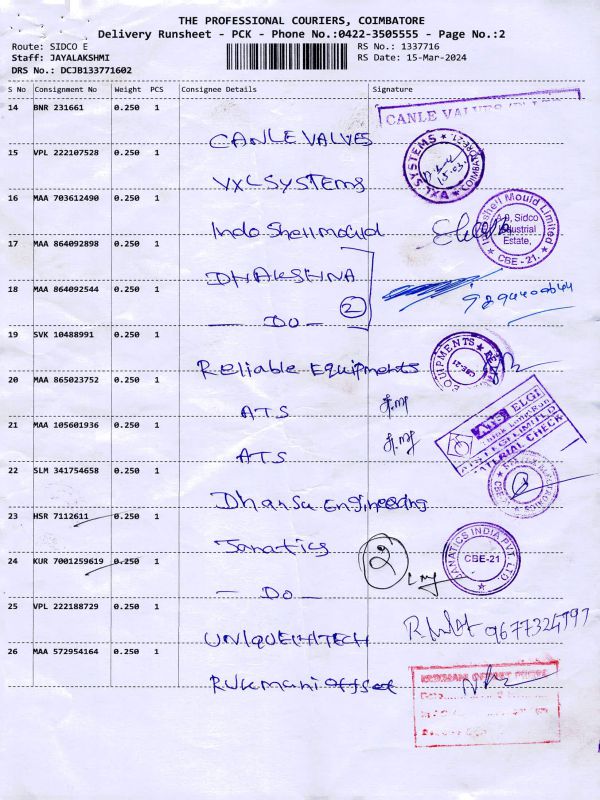 THE PROFESSIONAL COURIERS, COIMBATORE
Delivery Runsheet - PCK - Phone No.:0422-3505555 - Page No.:2
Route: SIDCO E
RS No.: 1337716
Staff: JAYALAKSHMI
RS Date: 15-Mar-2024
DRS No.: DCJB133771602
S No Consignment No Weight PCS Consignee Details Signature
14 BNR 231661 0.250 1
CANLE VALVES
CANLE VALVES
15 VPL 222107528 0.250 1
VXL SYSTEMS
VXL SYSTEMS
COIMBATORE-21
16 MAA 703612490 0.250 1
Indo Shell mould
Shell Mould Limited
Sidco
Industrial
Estate,
CBE - 21.
17 MAA 864092898 0.250 1
DHAKSHNA
18 MAA 864092544 0.250 1
2
- DO -
19 SVK 10488991 0.250 1
Reliable Equipments
EQUIPMENTS
CBE-21
20 MAA 865023752 0.250 1
ATS
ATS ELGI
21 MAA 105601936 0.250 1
ATS
ATS ELGI LIMITED
MATERIAL CHECK
22 SLM 341754658 0.250 1
Dhansu Engineering
23 HSR 7112611 0.250 1
Janatics
2
JANATICS INDIA PVT. LTD
CBE-21
24 KUR 7001259619 0.250 1
- DO -
25 VPL 222188729 0.250 1
UNIQUE HITECH
26 MAA 572954164 0.250 1
Rukmani offset